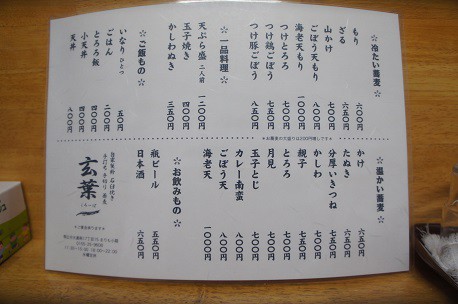 ☆冷たい蕎麦☆
もり 六〇〇円
ざる 六五〇円
山かけ 七〇〇円
ごぼう天もり 八〇〇円
海老天もり 一〇〇〇円
つけとろろ 七〇〇円
つけ鶏ごぼう 七〇〇円
つけ豚ごぼう 八五〇円
☆一品料理☆
天ぷら盛 二人前 一二〇〇円
玉子焼き 四〇〇円
かしわぬき 三五〇円
☆ご飯もの☆
いなり ひとつ 五〇円
ごはん 二〇〇円
とろろ飯 四〇〇円
小天丼 四〇〇円
天丼 八〇〇円
※お蕎麦の大盛りは200円増しです
☆温かい蕎麦☆
かけ
たぬき
分厚いきつね
かしわ
親子
とろろ
月見
玉子とじ
カレー南蛮
ごぼう天
海老天 一〇〇〇円
☆お飲みもの☆
瓶ビール 五五〇円
日本酒 六五〇円
自家製粉 石臼挽き
手打ち 手切り 蕎麦
玄葉